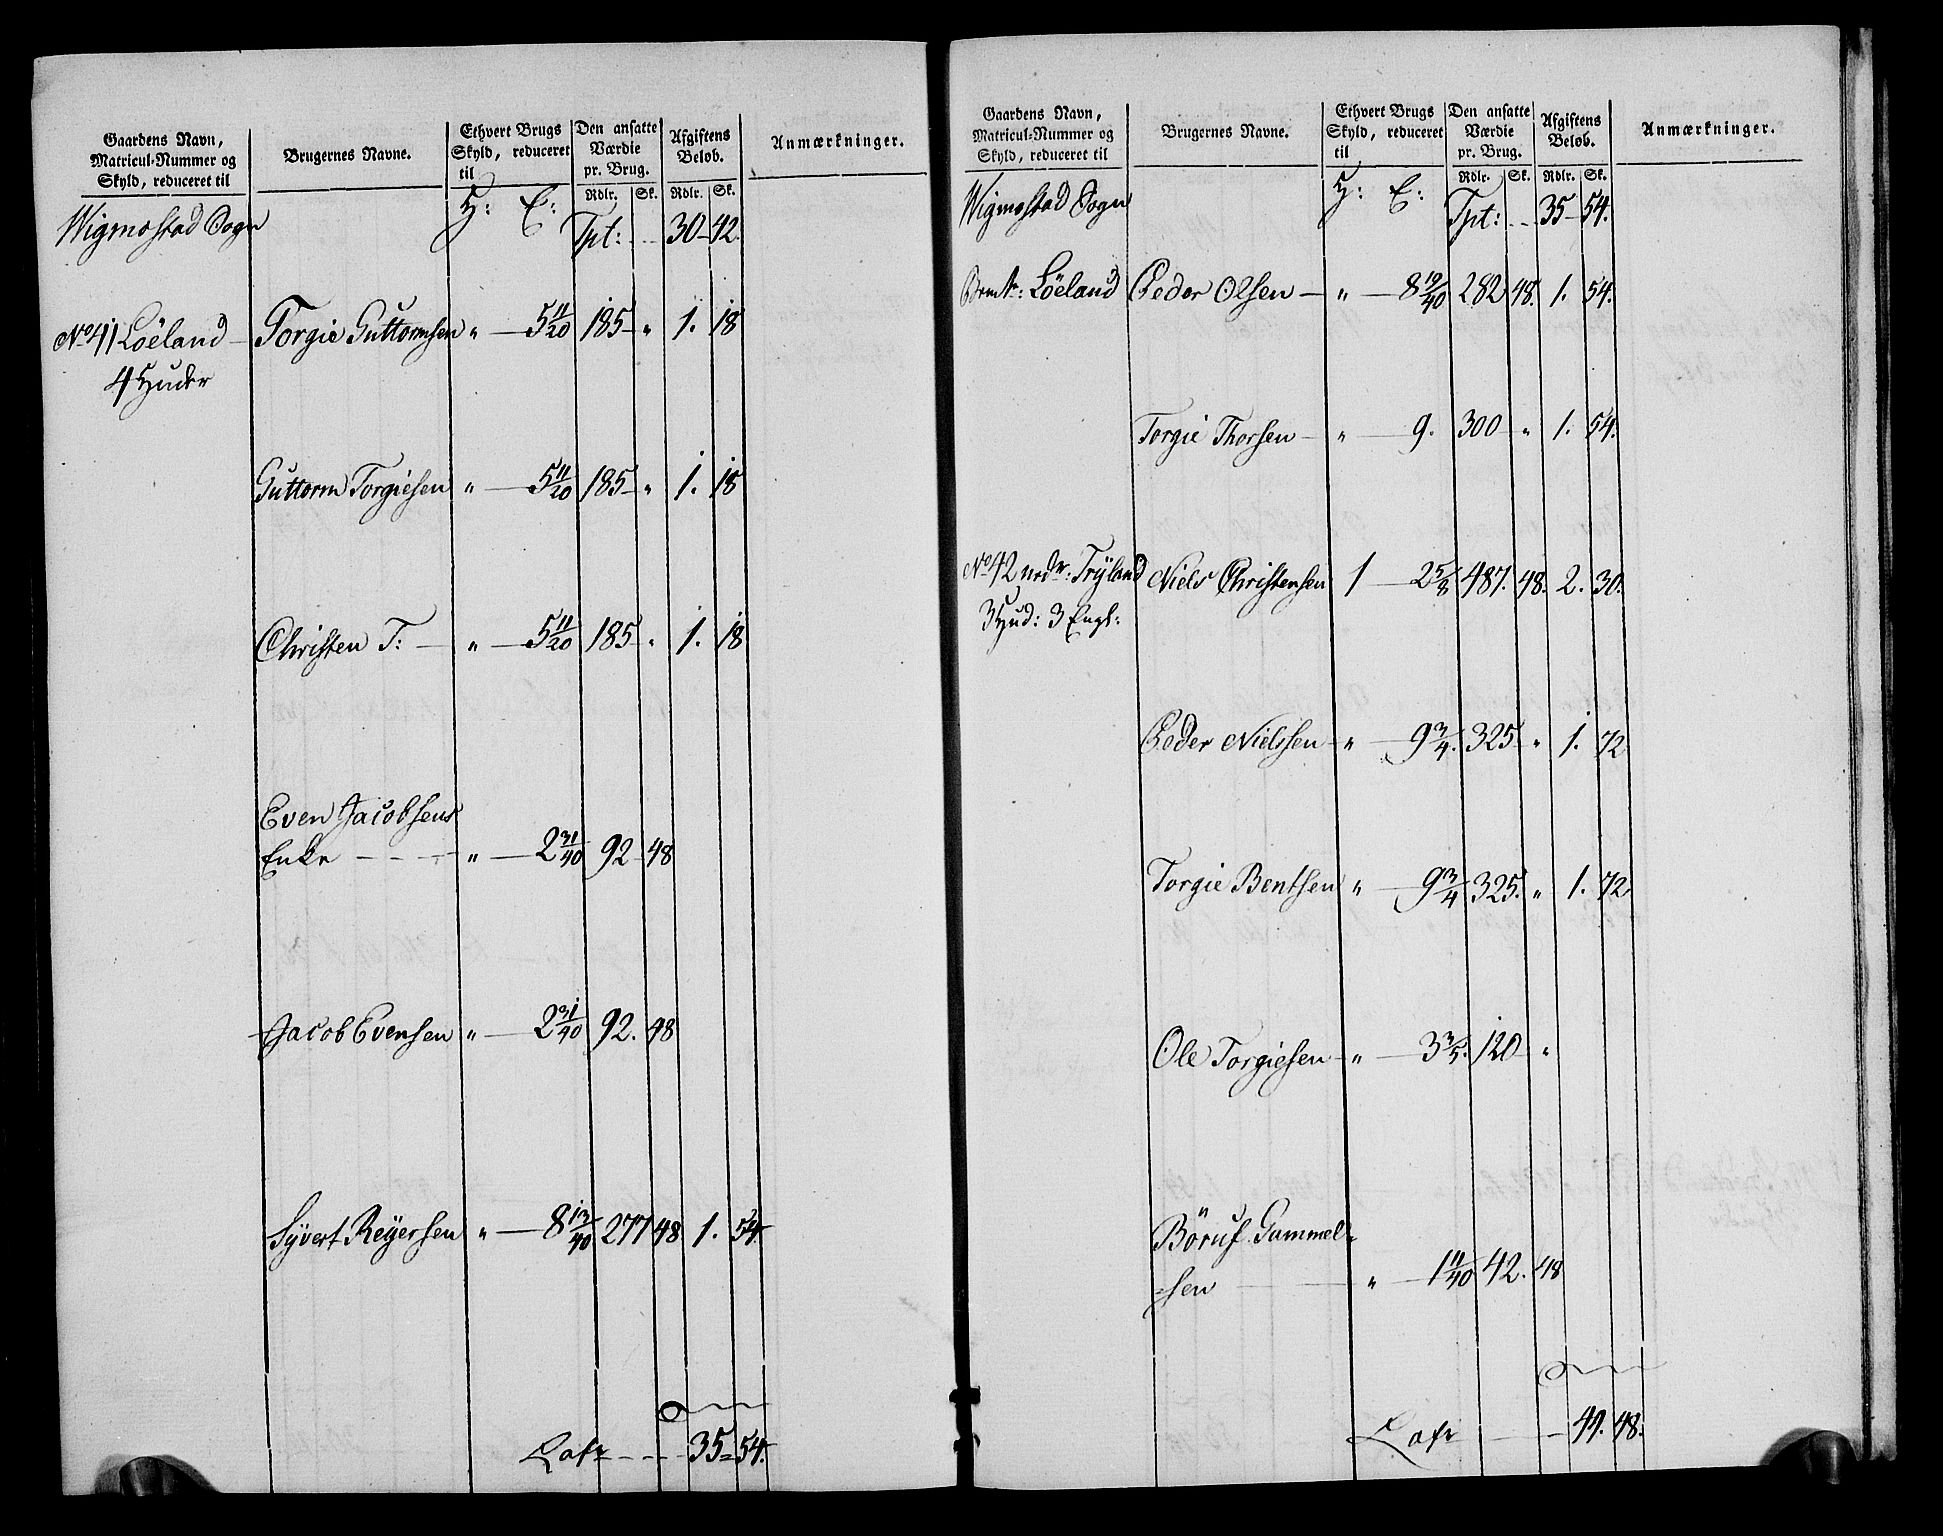 Gaardens Navn,
Matricul-Nummer og
Skyld, reduceret til
Brugernes Navne.
Ethvert Brugs
Skyld, reduceret
til
Den ansatte
Værdie
pr. Brug.
Rdlr. Sk.
Afgiftens
Beløb.
Rdlr. Sk.
Anmærkninger.
Wigmostad Sogn H: E: Tpt: 30 42.
No 41 Löeland Torgie Guttormsen " 5 11/20 185 " 1. 18
4 Huder
Guttorm Torgiesen " 5 11/20 185 " 1. 18
Christen T: " 5 11/20 185 " 1. 18
Even Jacobsens
Enke " 2 31/40 92 48
Jacob Evensen " 2 31/40 92. 48
Syvert Reyersen " 8 13/40 277 48 1. 54
Lats 35 54.
Gaardens Navn,
Matricul-Nummer og
Skyld, reduceret til
Brugernes Navne.
Ethvert Brugs
Skyld, reduceret
til
Den ansatte
Værdie
pr. Brug.
Rdlr. Sk.
Afgiftens
Beløb.
Rdlr. Sk.
Anmærkninger.
Wigmostad Sogn H: E: Tpt: 35 54.
Löeland Peder Olsen " 8 19/40 282 48. 1. 54.
Torgie Thorsen " 9. 300 " 1. 54.
No 42 nedr: Trÿland Niels Christensen 1 2 5/8 487. 48. 2. 30.
3 Hud: 3 Engl:
Peder Nielssen " 9 3/4. 325 " 1. 72
Torgie Bentsen " 9 3/4 325. " 1. 72
Ole Torgiesen " 3 3/5. 120 "
Böruf Gummel-
sen " 1 11/40 42. 48
Lats 44. 48.